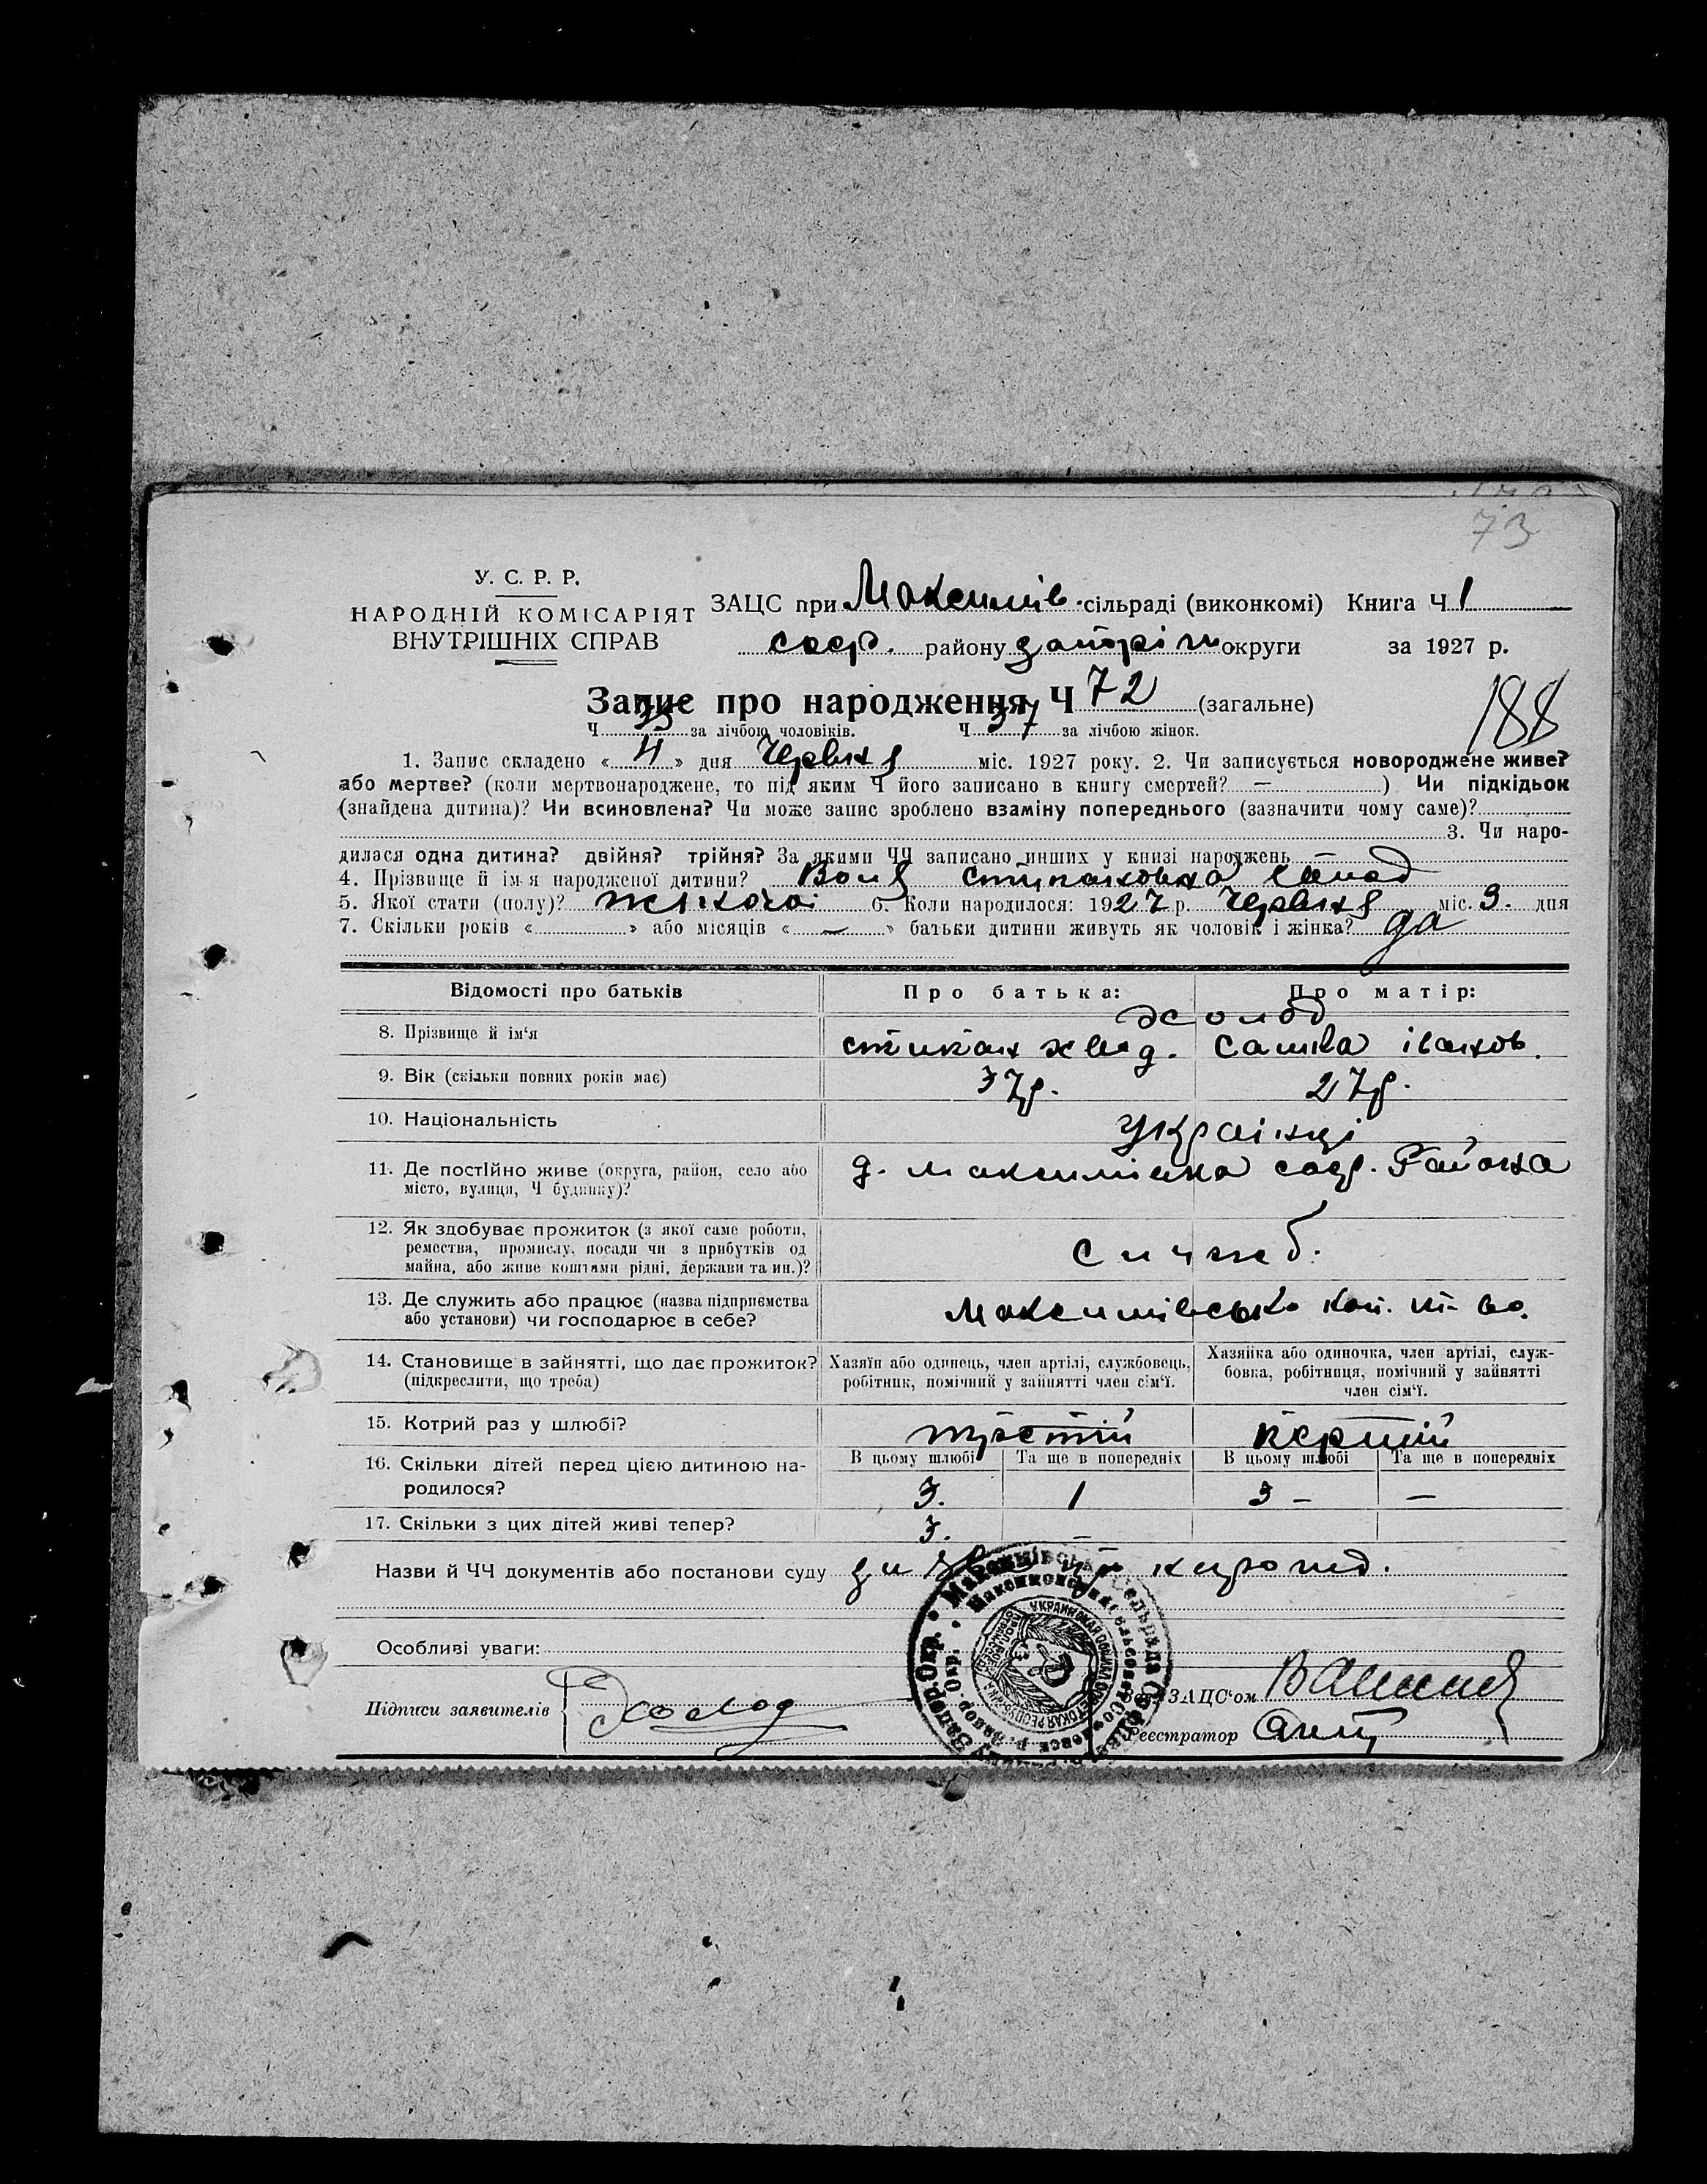 73
У. С. Р. Р.
НАРОДНІЙ КОМІСАРІЯТ
ВНУТРІШНІХ СПРАВ
ЗАЦС при Максимів. сільраді (виконкомі) Книга Ч 1
соф. району запоріж округи за 1927 р.
Запис про народження Ч 72 (загальне)
188
Ч 35 за лічбою чоловіків. Ч 37 за лічбою жінок.
1. Запис складено « 4 » дня Червня міс. 1927 року. 2. Чи записується новороджене живе?
або мертве? (коли мертвонароджене, то під яким Ч його записано в книгу смертей? — ) Чи підкідьок
(знайдена дитина)? Чи всиновлена? Чи може запис зроблено взаміну попереднього (зазначити чому саме)?
3. Чи наро-
дилася одна дитина? двійня? трійня? За якими ЧЧ записано инших у книзі народжень
4. Прізвище й ім‘я народженої дитини? Воля
5. Якої стати (полу)? жіночоі 6. Коли народилося: 1927 р. Червня міс. 3. дня
7. Скільки років « » або місяців « — » батьки дитини живуть як чоловік і жінка? да
Відомості про батьків Про батька: Про матір:
Холод
8. Прізвище й ім‘я степан іванов.
9. Вік (скільки повних років має) 37р. 27р.
10. Національність Украінці
11. Де постійно живе (округа, район, село або
місто, вулиця, Ч будинку)?
д. максимівка соф. Района
12. Як здобуває прожиток (з якої саме роботи,
ремества, промислу, посади чи з прибутків од
майна, або живе коштами рідні, держави та ин.)?
служб.
13. Де служить або працює (назва підприємства
або установи) чи господарює в себе?
Максимівсько
14. Становище в зайнятті, що дає прожиток?
(підкреслити, що треба)
Хазяїн або одинець, член артілі, службовець,
робітник, помічний у зайнятті член сім‘ї.
Хазяйка або одиночка, член артілі, служ-
бовка, робітниця, помічний у зайнятті
член сім‘ї.
15. Котрий раз у шлюбі? третій перший
16. Скільки дітей перед цією дитиною на-
родилося?
В цьому шлюбі Та ще в попередніх В цьому шлюбі Та ще в попередніх
3. 1 3 – —
17. Скільки з цих дітей живі тепер? 3. –
Назви й ЧЧ документів або постанови суду
Особливі уваги:
Підписи заявителів Холод
ЗАЦС‘ом
Реєстратор